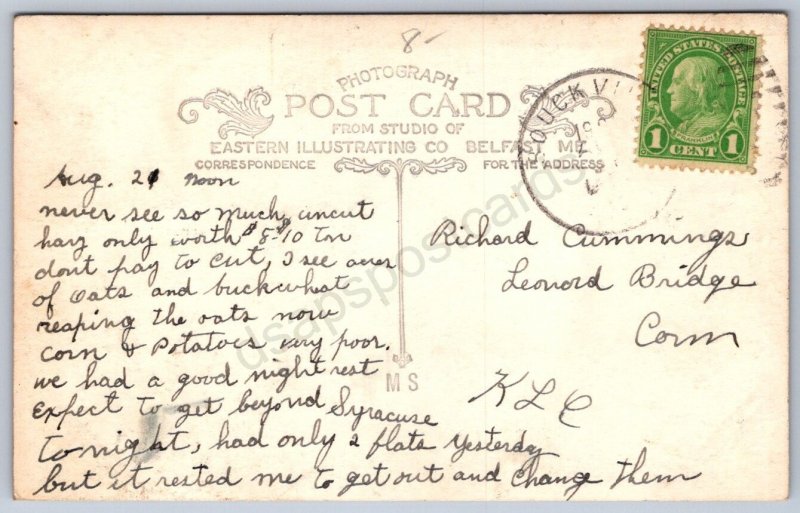 8-
PHOTOGRAPH
POST CARD
FROM STUDIO OF
EASTERN ILLUSTRATING CO BELFAST ME.
CORRESPONDENCE FOR THE ADDRESS
UNITED STATES POSTAGE
FRANKLIN
1 CENT 1
OUCKV
Aug. 21 noon
never see so much uncut
hay only worth $8-$10 Ton
dont pay to cut, I see acres
of oats and buckwheat
reaping the oats now
Corn & Potatoes very poor.
we had a good night rest
Expect to get beyond Syracuse
to night, had only 2 flats yesterday
but it rested me to get out and change them
Richard Cummings
Leonord Bridge
Conn
KLC
MS
dsapspostcards